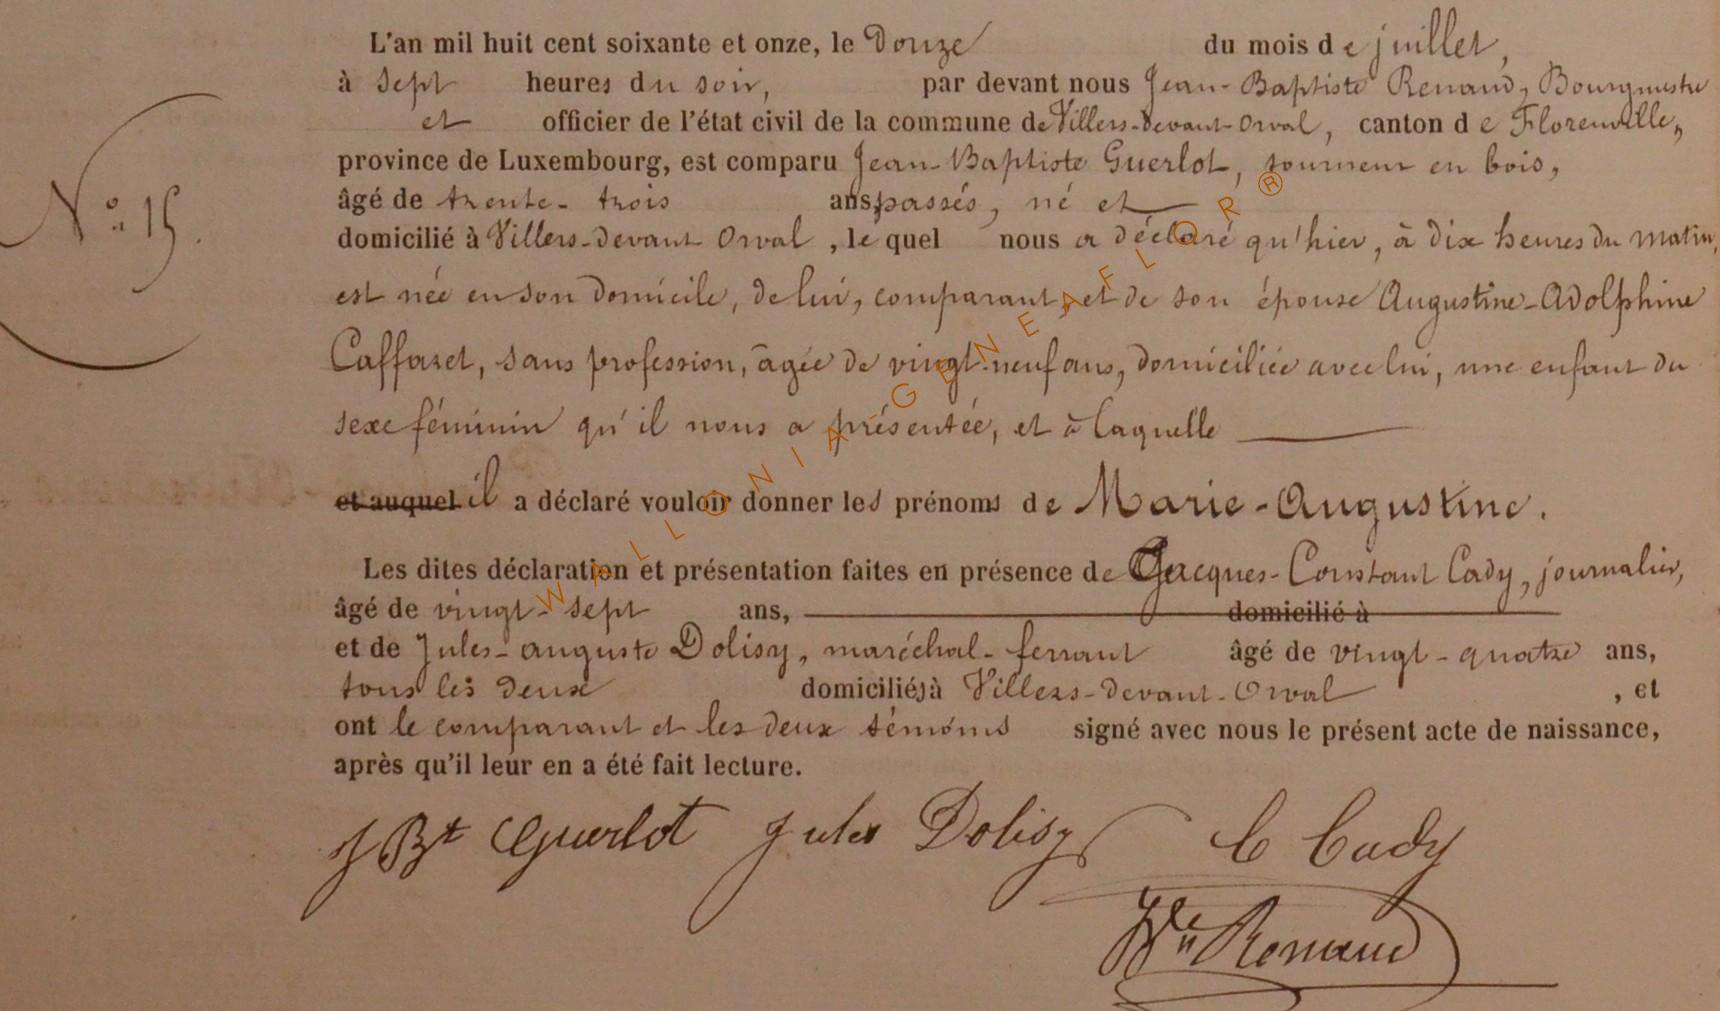 L'an mil huit cent soixante et onze, le Douze du mois de juillet,
à Sept heures du soir, par devant nous Jean-Baptiste Renaud, Bourgmestre
et officier de l'état civil de la commune de Villers-devant-Orval, canton de Florenville,
province de Luxembourg, est comparu Jean-Baptiste Guerlot, tourneur en bois,
âgé de trente-trois ans passés, né et
domicilié à Villers-devant Orval, lequel nous a déclaré qu'hier, à dix heures du matin,
est née en son domicile, de lui, comparant, et de son épouse Augustine-Adolphine
Caffaret, sans profession, âgée de vingt-neuf ans, domiciliée avec lui, une enfant du
sexe féminin qu'il nous a présentée, et à laquelle
et auquel il a déclaré vouloir donner les prénoms de Marie-Augustine.
Les dites déclaration et présentation faites en présence de Jacques-Constant Cady, journalier,
âgé de vingt-sept ans, domicilié à
et de Jules-auguste Dolisy, maréchal-ferrant âgé de vingt-quatre ans,
tous les deux domiciliés à Villers-devant-Orval, et
ont le comparant et les deux témoins signé avec nous le présent acte de naissance,
après qu'il leur en a été fait lecture.
N° 15.
J Bt Guerlot Jules Dolisy C Cady
Renaud
WALLONIA-GENEAFLOR®